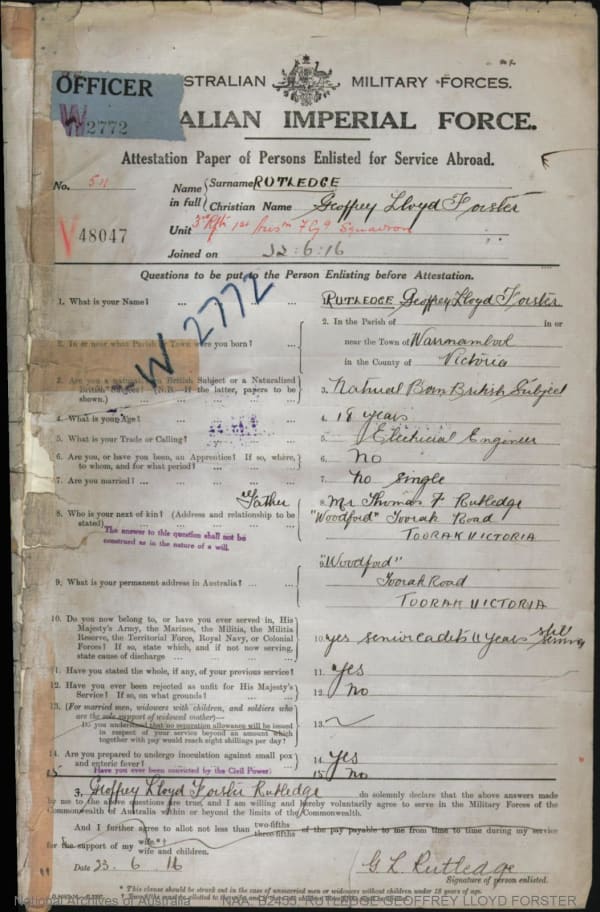 OFFICER
W 2772
STRALIAN MILITARY FORCES.
ALIAN IMPERIAL FORCE.
Attestation Paper of Persons Enlisted for Service Abroad.
No. 511
Name in full { Surname RUTLEDGE
Christian Name Geoffrey Lloyd Forster
V 48047
Unit Squadron
Joined on 23:6:16
Questions to be put to the Person Enlisting before Attestation.
W 2772
1. What is your Name? ... ... ... ... RUTLEDGE Geoffrey Lloyd Forster
2. In or near what Parish or Town were you born? ... 2. In the Parish of in or
near the Town of Warrnambool
in the County of Victoria
3. Are you a natural born British Subject or a Naturalized
British Subject? (N.B.—If the latter, papers to be
shown.) 3. Natural Born British Subject
4. What is your Age? 4. 18 years
5. What is your Trade or Calling? 5. Electricial Engineer
6. Are you, or have you been, an Apprentice? If so, where,
to whom, and for what period? 6. No
7. Are you married? 7. No Single
Father
8. Who is your next of kin? (Address and relationship to be
stated) 8. Mr Thomas F Rutledge
"Woodford" Toorak Road
TOORAK VICTORIA
The answer to this question shall not be
construed as in the nature of a will.
9. What is your permanent address in Australia? 9. "Woodford"
Toorak Road
TOORAK VICTORIA
10. Do you now belong to, or have you ever served in, His
Majesty's Army, the Marines, the Militia, the Militia
Reserve, the Territorial Force, Royal Navy, or Colonial
Forces? If so, state which, and if not now serving,
state cause of discharge 10. yes senior cadets 11 years still
serving
11. Have you stated the whole, if any, of your previous service? 11. yes
12. Have you ever been rejected as unfit for His Majesty's
Service? If so, on what grounds? 12. No
13. (For married men, widowers with children, and soldiers who
are the sole support of widowed mother)—
Do you understand that no separation allowance will be issued
in respect of your service beyond an amount which
together with pay would reach eight shillings per day? 13.
14. Are you prepared to undergo inoculation against small pox
and enteric fever? 14. Yes
15 Have you ever been convicted by the Civil Power? 15 No
I, Geoffrey Lloyd Forster Rutledge do solemnly declare that the above answers made
by me to the above questions are true, and I am willing and hereby voluntarily agree to serve in the Military Forces of the
Commonwealth of Australia within or beyond the limits of the Commonwealth.
And I further agree to allot not less than two-fifths three-fifths of the pay payable to me from time to time during my service
for the support of my wife*†
wife and children.
Date 23 6 16
G L Rutledge
Signature of person enlisted.
* This clause should be struck out in the case of unmarried men or widowers without children under 18 years of age.
National Archives of Australia NAA: B2455, RUTLEDGE GEOFFREY LLOYD FORSTER